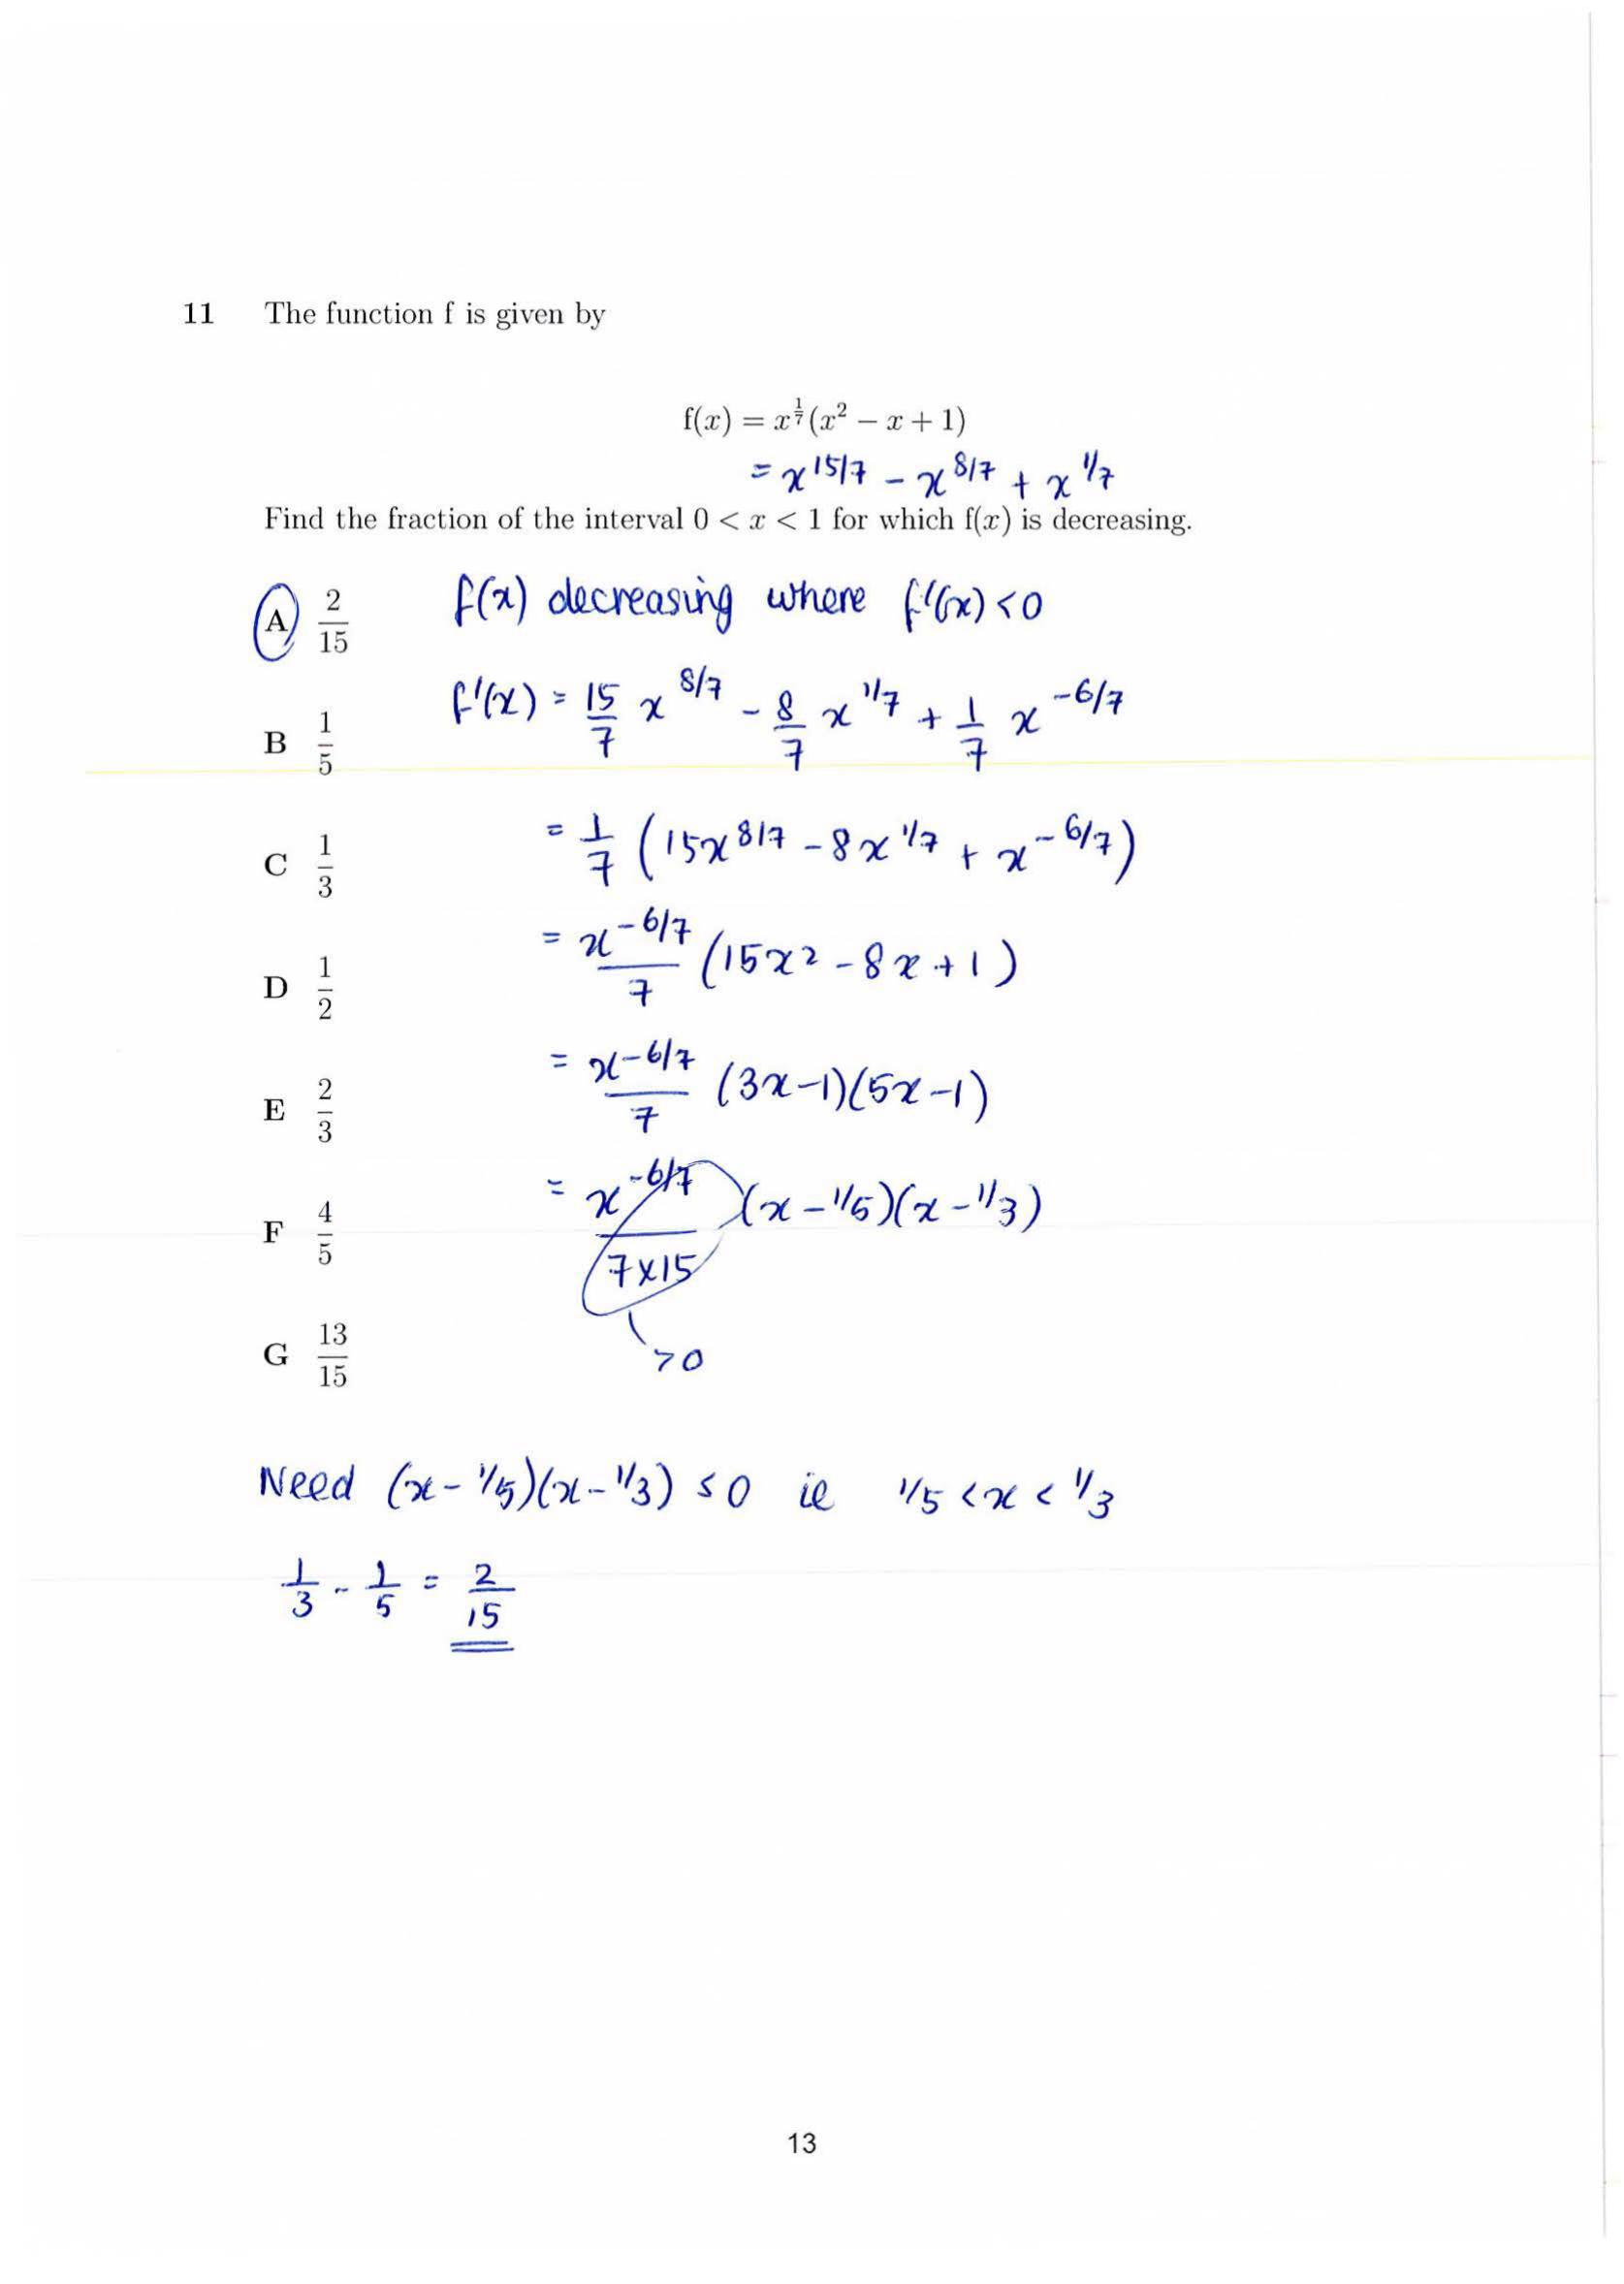 11 The function f is given by
f(x) = x^{1/7}(x² − x + 1)
= x^{15/7} − x^{8/7} + x^{1/7}
Find the fraction of the interval 0 < x < 1 for which f(x) is decreasing.
A 2/15
f(x) decreasing where f'(x) < 0
B 1/5
f'(x) = 15/7 x^{8/7} − 8/7 x^{1/7} + 1/7 x^{−6/7}
C 1/3
= 1/7 (15x^{8/7} − 8x^{1/7} + x^{−6/7})
D 1/2
= x^{−6/7}/7 (15x² − 8x + 1)
E 2/3
= x^{−6/7}/7 (3x−1)(5x−1)
F 4/5
= x^{−6/7}/(7×15) (x − 1/5)(x − 1/3)
G 13/15
>0
Need (x − 1/5)(x − 1/3) ≤ 0 ie 1/5 < x < 1/3
1/3 − 1/5 = 2/15
13